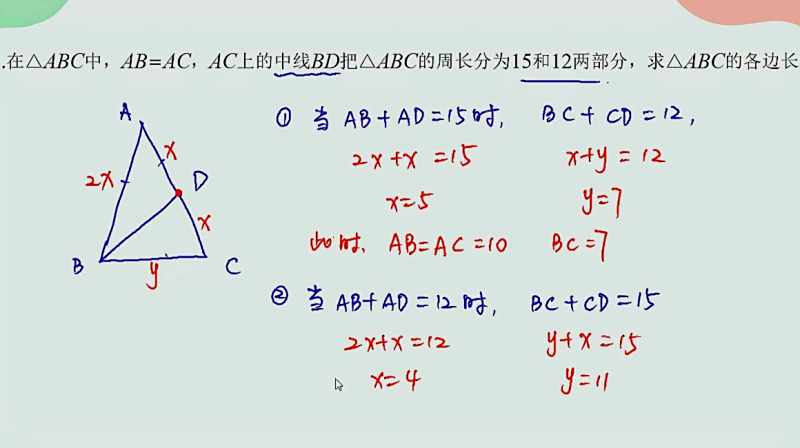 .在△ABC中，AB=AC，AC上的中线BD把△ABC的周长分为15和12两部分，求△ABC的各边长
① 当 AB+AD=15时， BC+CD=12，
2x+x=15 x+y=12
x=5 y=7
此时， AB=AC=10 BC=7
② 当 AB+AD=12时， BC+CD=15
2x+x=12 y+x=15
x=4 y=11
A
x
2x
D
x
B
C
y